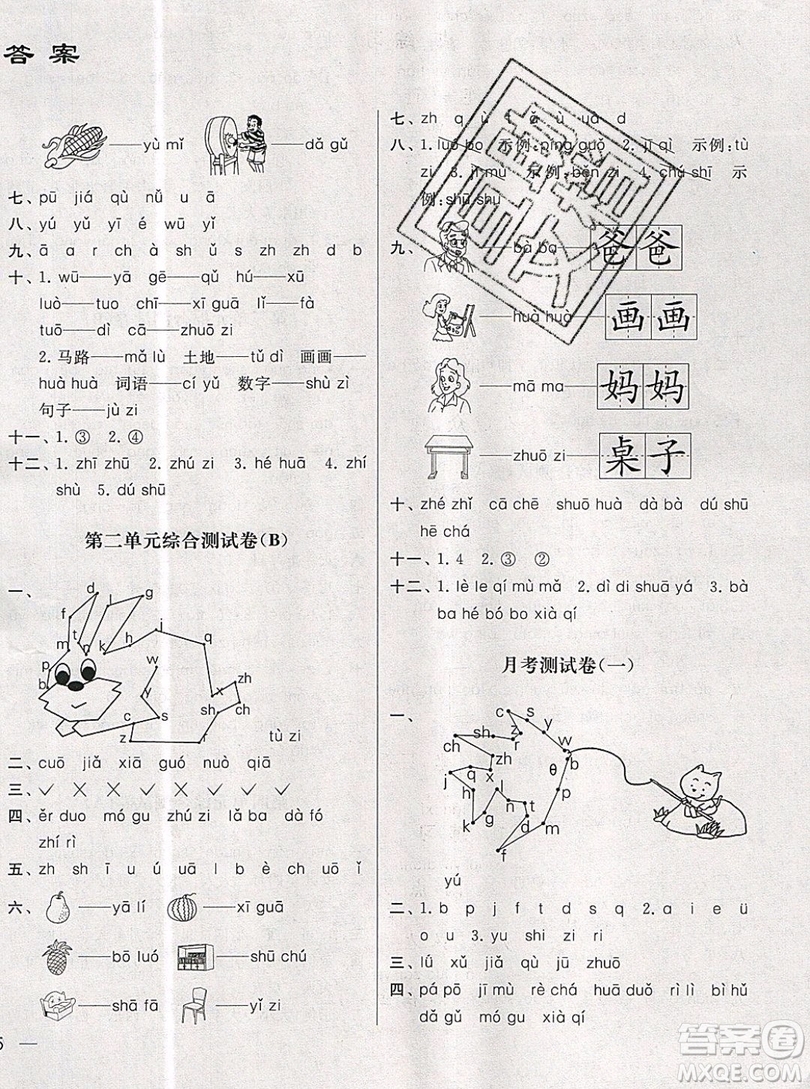 答案
yù mǐ dǎ gǔ
七、pū jiá qù nǚ u ā
八、yú yǔ yī é wū yí
九、ā a r ch à sh ǔ s zh zh d b
十、1. wū——yā gē——gē hú——xū
luò——tuo chī——xī guā lǐ——fà
tuō——dì cā——zhuō zi
2. 马路——mǎ lù 土地——tǔ dì 画画——
huà huà 词语——cí yǔ 数字——shù zì
句子——jù zi
十一、1. ③ 2. ④
十二、1. zhī zhū 2. zhú zi 3. hé huā 4. zhí
shù 5. dú shū
第二单元综合测试卷(B)
一、
d
f
l
g
m
t
n
k
h
j
q
p
b
w
y
x
zh
c
s
sh
ch
z
r
tù zi
二、cuō jiǎ xiā guó nuò qiā
三、✓ ✗ ✗ ✗ ✗ ✓ ✓ ✓
四、ěr duo mó gu zá jì lǎ ba dà fó
zhí rì
五、zh sh ī u ú uā l b è ch uō ǐ
六、
yā lí xī guā
bō luó shū chú
shā fā yǐ zi
七、zh q
八、1. luó bo 示例:píng guǒ 2. jī qì 示例:tù
zi 3. jī mù 示例:běn zi 4. chú shī 示
例:shū shu
九、
bà ba 爸爸
huà huà 画画
mā ma 妈妈
zhuō zi 桌子
十、zhé zhǐ cā chē shuō huà dà bà dú shū
hē chá
十一、1. 4 2. ③ ②
十二、1. lè le qí mù mǎ 2. dì di shuā yá 3. bà
ba hé bó bo xià qí
月考测试卷(一)
一、
c
s
y
w
b
p
m
d
t
n
l
g
k
h
j
q
x
zh
ch
sh
r
z
f
yú
二、1. o w y 2. f t 示例:o 2. a i e ü
o u 3. yu shi zi ri
三、lǘ xǔ jǔ guā zǐ jù zhuō
四、pá pō jī mù rè chá huā duǒ bǐ shǔ